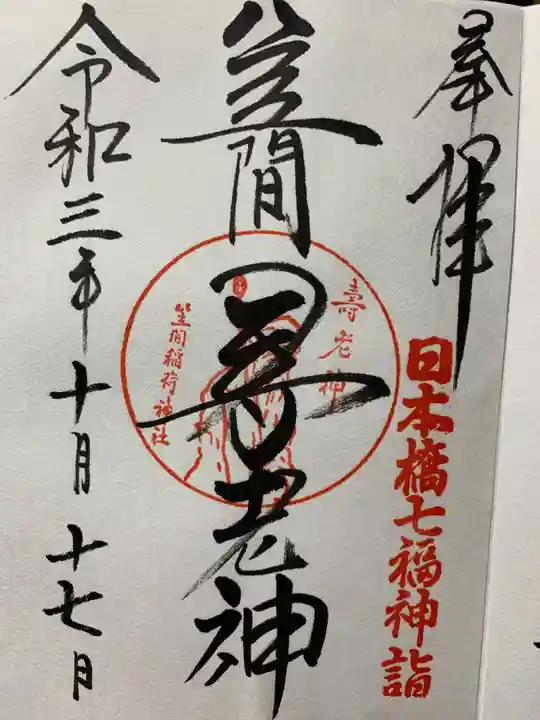 奉拝
日本橋七福神詣
笠間
壽老神
壽老神
笠間稲荷神社
令和三年十月十七日